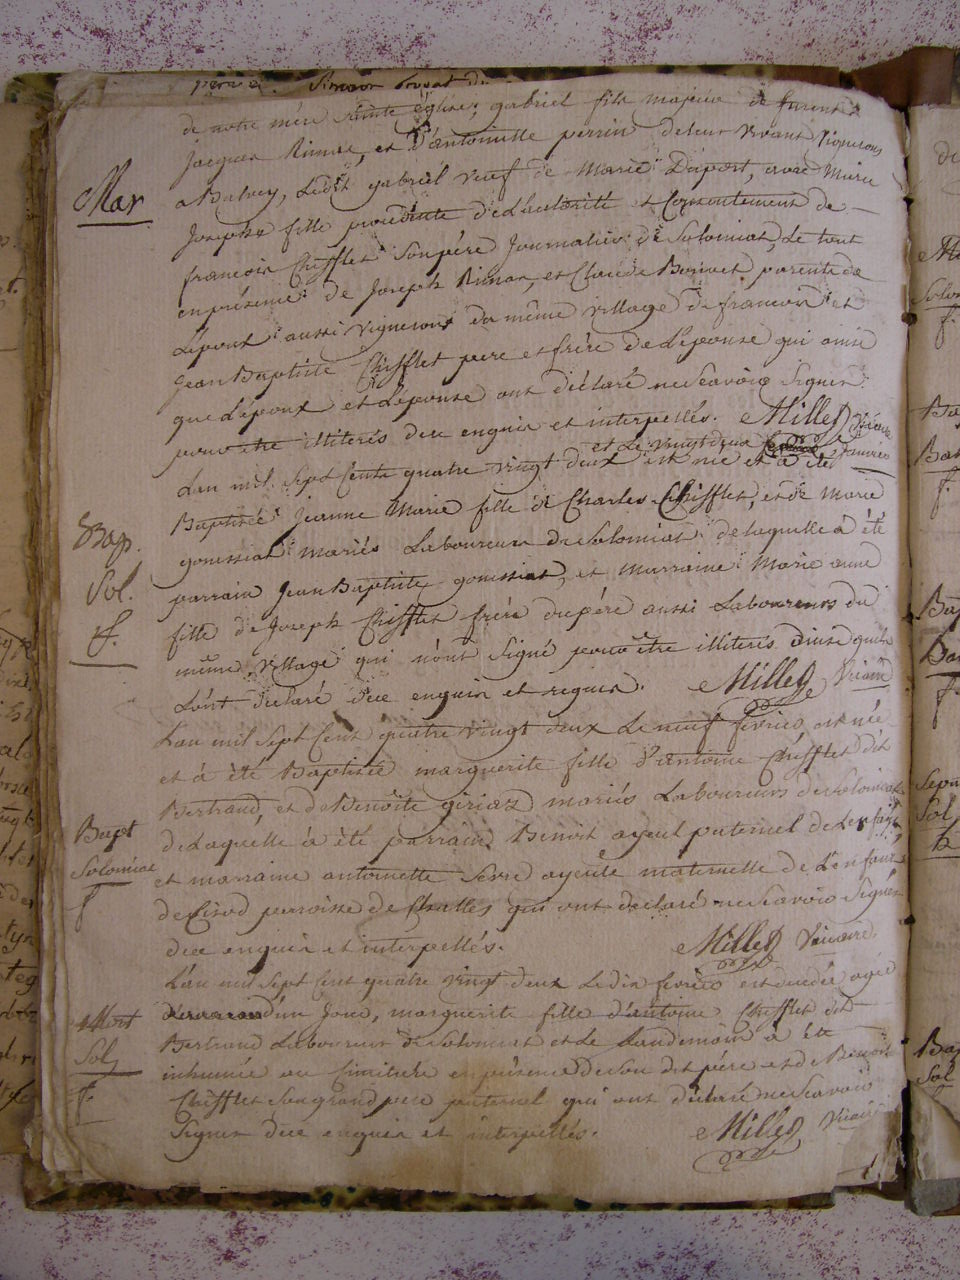 de notre mère sainte église, gabriel fils majeur de furent
jacques Rimar, et d'antoinette perrin de leur vivant vignerons
Mar
a Balvey, Ledit gabriel veuf de Marie Duport, avec Marie
Josephe fille procedante de L'autorité et Consentement de
francois Chifflet Son père Journalier de Solomiat, Le tout
en présence de Joseph Rimar, et Claude Bonivet, parents de
L'epoux aussi vignerons du même village de francois et
Jean Baptiste Chifflet pere et frère de L'épouse qui ainsi
que L'epoux et L'epouse ont déclaré ne Scavoir Signer
pour être illiterés de ce enquis et interpellés. Millet Vicaire
et Le vingt deux janvier
L'an mil Sept Cents quatre vingt deux est née et a été
Bap.
Baptisée Jeanne Marie fille de Charles Chifflet, et de Marie
goussiat mariés Laboureurs de Solomiat de laquelle à été
Sol.
parrain Jean Baptiste goussiat, et marraine Marie anne
f.
fille de Joseph Chifflet frère du père aussi Laboureurs du
même village qui n'ont Signé pour être illiterés ainsi qu'ils
L'ont declaré de ce enquis et requis. Millet Vicaire
L'an mil Sept Cent quatre vingt deux Le neuf fevrier est née
et à été Baptisée marguerite fille d'antoine Chifflet dit
Bertrand, et de Benoîte girian mariés Laboureurs de Solomiat
Bapt
de Laquelle à été parrain Benoit ayeul paternel de L'enfant,
Solomiat
et marraine antoinette Serre ayeule maternelle de L'enfant
f
de Cirod parroisse de Challes qui ont declaré ne Scavoir Signer
de ce enquis et interpellés. Millet Vicaire.
L'an mil Sept Cent quatre vingt deux Le dix fevrier est decedée agée
Mort
d'un Jour, marguerite fille d'antoine Chifflet dit
Sol
Bertrand Laboureur de Solomiat et Le Landemain à été
f.
inhumée au Cimitiere en présence de Son dit père et de Benoit
Chifflet Son grand pere paternel qui ont declaré ne Scavoir
Signer de ce enquis et interpellés. Millet Vicaire